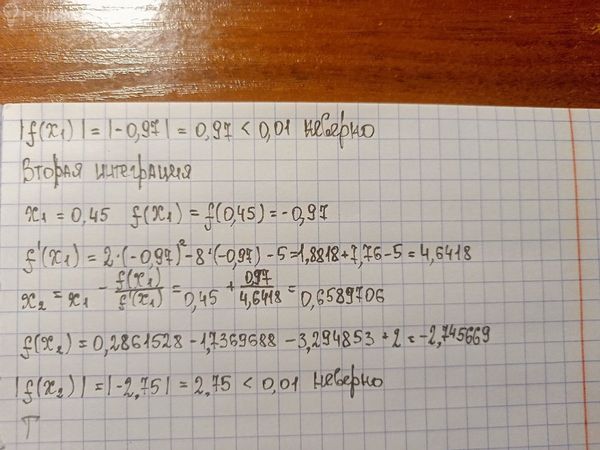 |f(x₁)| = |-0,97| = 0,97 < 0,01 неверно
Вторая интеграция
x₁ = 0,45 f(x₁) = f(0,45) = -0,97
f'(x₁) = 2·(-0,97)² - 8·(-0,97) - 5 = 1,8818 + 7,76 - 5 = 4,6418
x₂ = x₁ - f(x₁)/f'(x₁) = 0,45 + 0,97/4,6418 = 0,6589706
f(x₂) = 0,2861528 - 1,7369688 - 3,294853 + 2 = -2,745669
|f(x₂)| = |-2,75| = 2,75 < 0,01 неверно
Т